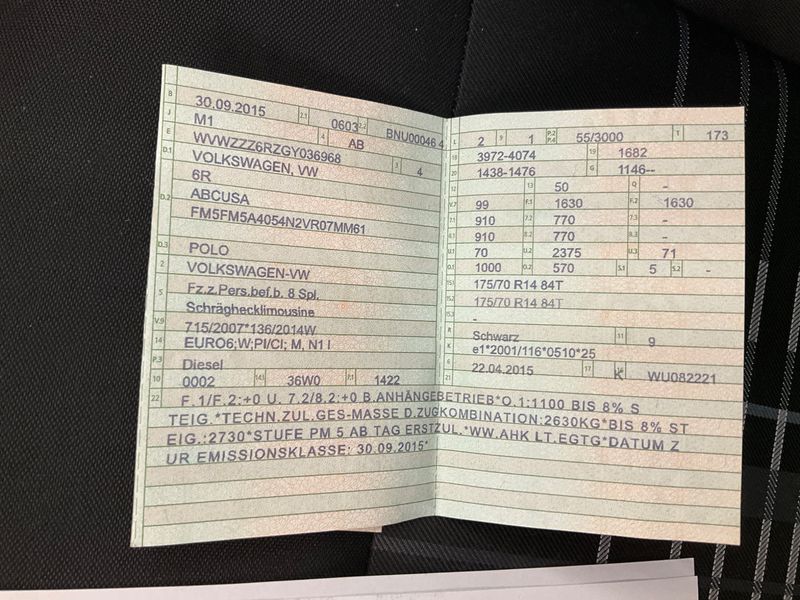 B 30.09.2015 2.1 0603 2.2 BNU00046 4
J M1 4 AB
E WVWZZZ6RZGY036968 3 4
D.1 VOLKSWAGEN, VW
6R
D.2 ABCUSA
FM5FM5A4054N2VR07MM61
D.3 POLO
2 VOLKSWAGEN-VW
5 Fz.z.Pers.bef.b. 8 Spl.
Schräghecklimousine
V.9 715/2007*136/2014W
14 EURO6;W;PI/CI; M, N1 I
P.3 Diesel
10 0002 14.1 36W0 P.1 1422
L 2 9 1 P.2 P.4 55/3000 T 173
18 3972-4074 19 1682
20 1438-1476 G 1146--
12 13 50 Q -
V.7 99 F.1 1630 F.2 1630
7.1 910 7.2 770 7.3 -
8.1 910 8.2 770 8.3 -
U.1 70 U.2 2375 U.3 71
O.1 1000 O.2 570 S.1 5 S.2 -
15.1 175/70 R14 84T
15.2 175/70 R14 84T
15.3 -
R Schwarz 11 9
K e1*2001/116*0510*25
6 22.04.2015 17 K 16 WU082221
21
22 F.1/F.2:+0 U. 7.2/8.2:+0 B.ANHÄNGEBETRIEB*O.1:1100 BIS 8% S
TEIG.*TECHN.ZUL.GES-MASSE D.ZUGKOMBINATION:2630KG*BIS 8% ST
EIG.:2730*STUFE PM 5 AB TAG ERSTZUL.*WW.AHK LT.EGTG*DATUM Z
UR EMISSIONSKLASSE: 30.09.2015*